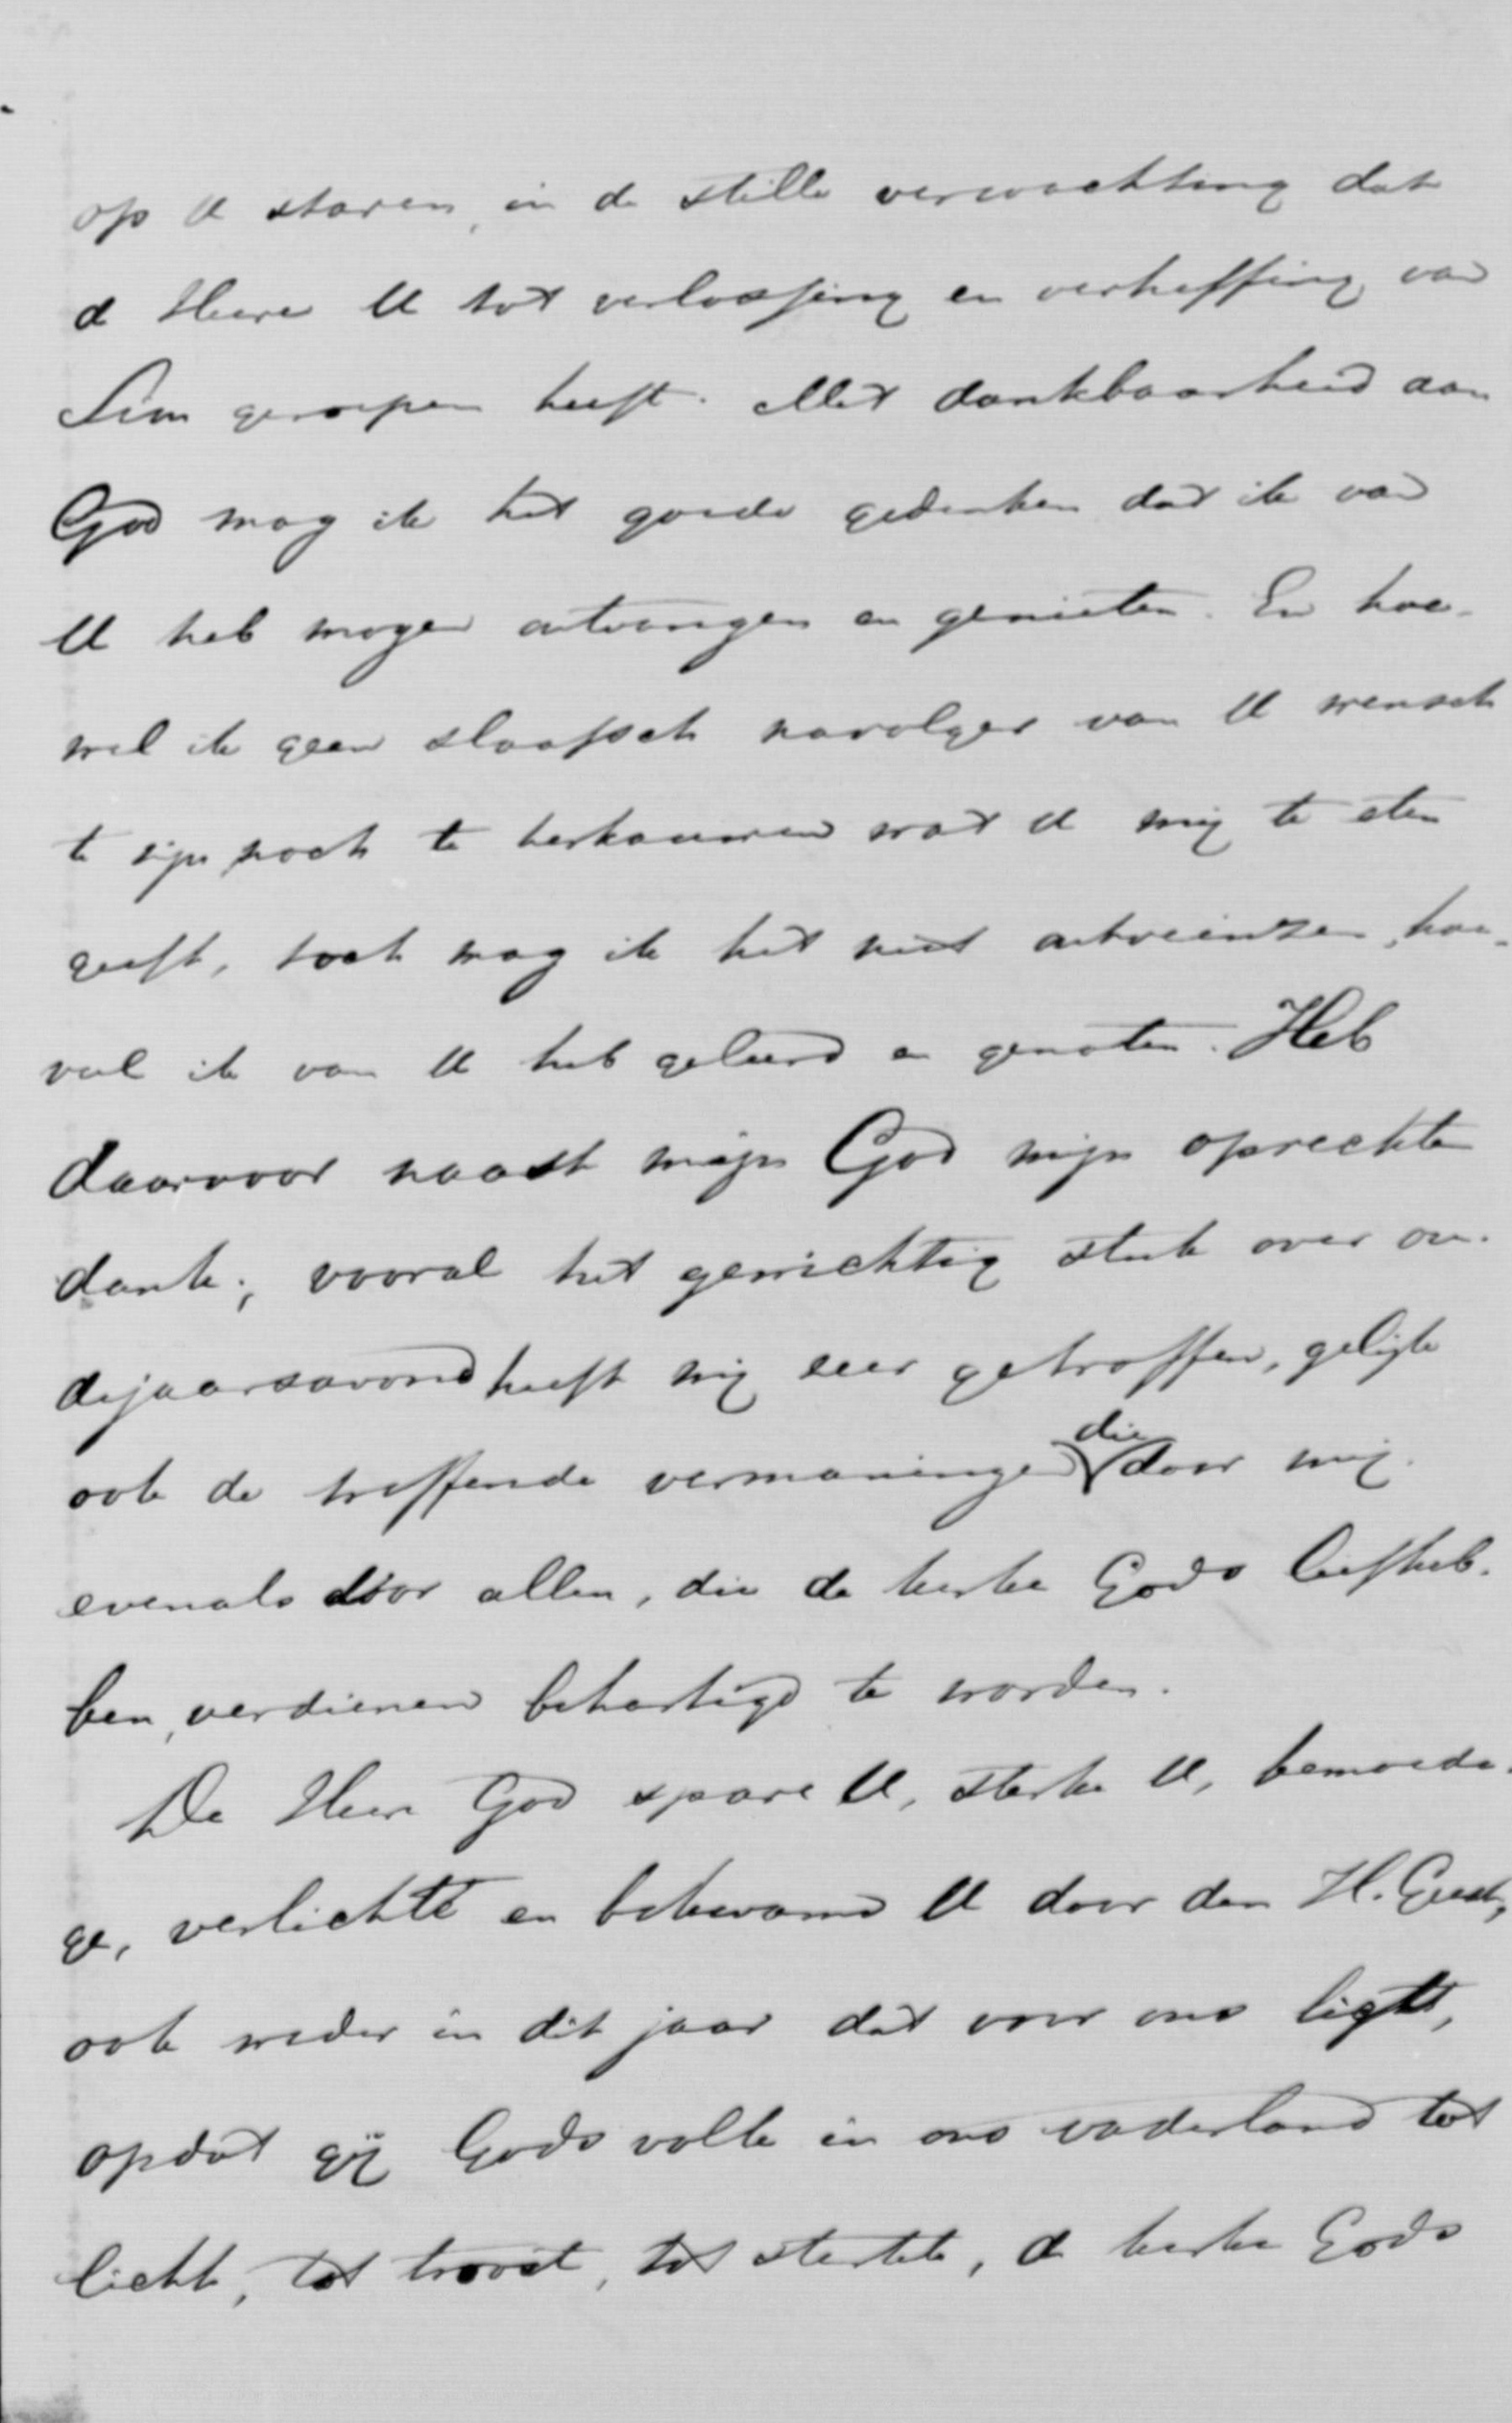 op U staren, in de stille verwachting dat
de Heere U tot verlossing en verheffing van
Sion geroepen heeft. Met dankbaarheid aan
God mag ik het goede gedenken dat ik van
U heb mogen ontvangen en genieten. En hoe-
wel ik geen slaafsch navolger van U wensch
te zijn noch te herkauwen wat U mij te eten
geeft, toch mag ik het niet ontveinzen, hoe-
veel ik van U heb geleerd en genoten. Heb
daarvoor naast mijn God mijn oprechten
dank; vooral het gewichtig stuk over ou-
dejaarsavond heeft mij zeer getroffen, gelijk
ook de treffende vermaningen die door mij
evenals door allen, die de kerke Gods liefheb-
ben, verdienen behartigd te worden.
De Heere God spare U, sterke U, bemoedi-
ge, verlichte en bekwame U door den H. Geest,
ook weder in dit jaar dat voor ons ligt,
opdat gij Gods volk in ons vaderland tot
licht, tot troost, tot sterkte, de kerke Gods